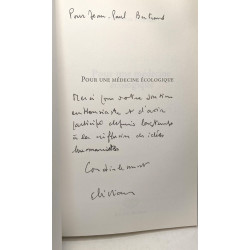 Pour Jean-Paul Bertrand
POUR UNE MÉDECINE ÉCOLOGIQUE
Merci pour votre soutien
et d'avoir
participé depuis longtemps
à la réflexion des idées
humanistes
Cordialement